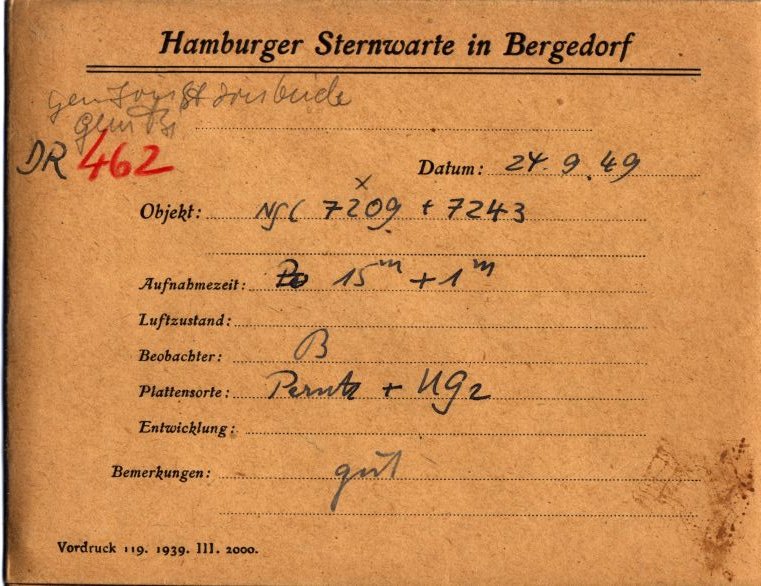 Hamburger Sternwarte in Bergedorf
gem
gem B.
DR 462
Datum: 24. 9. 49
x
Objekt: NGC 7209 + 7243
Aufnahmezeit: 15m + 1m
Luftzustand:
Beobachter: B
Plattensorte: Perutz + UG2
Entwicklung:
Bemerkungen: gut
Vordruck 119. 1939. III. 2000.